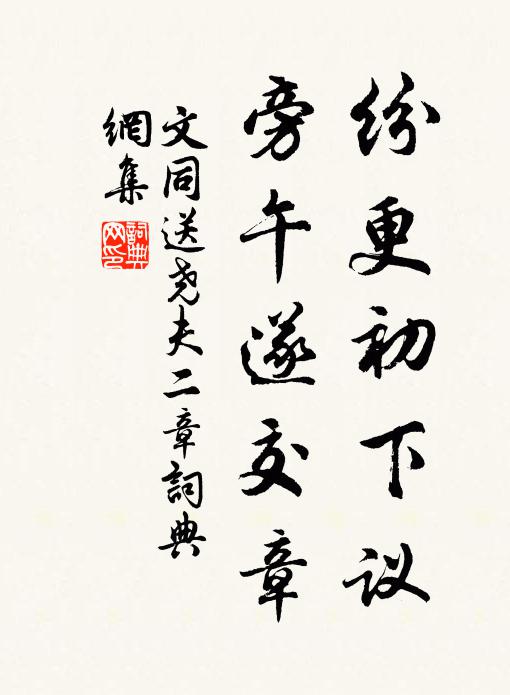 纷更初下议
旁午遂交章
文同送尧夫二章詞典
網集
詞典网印